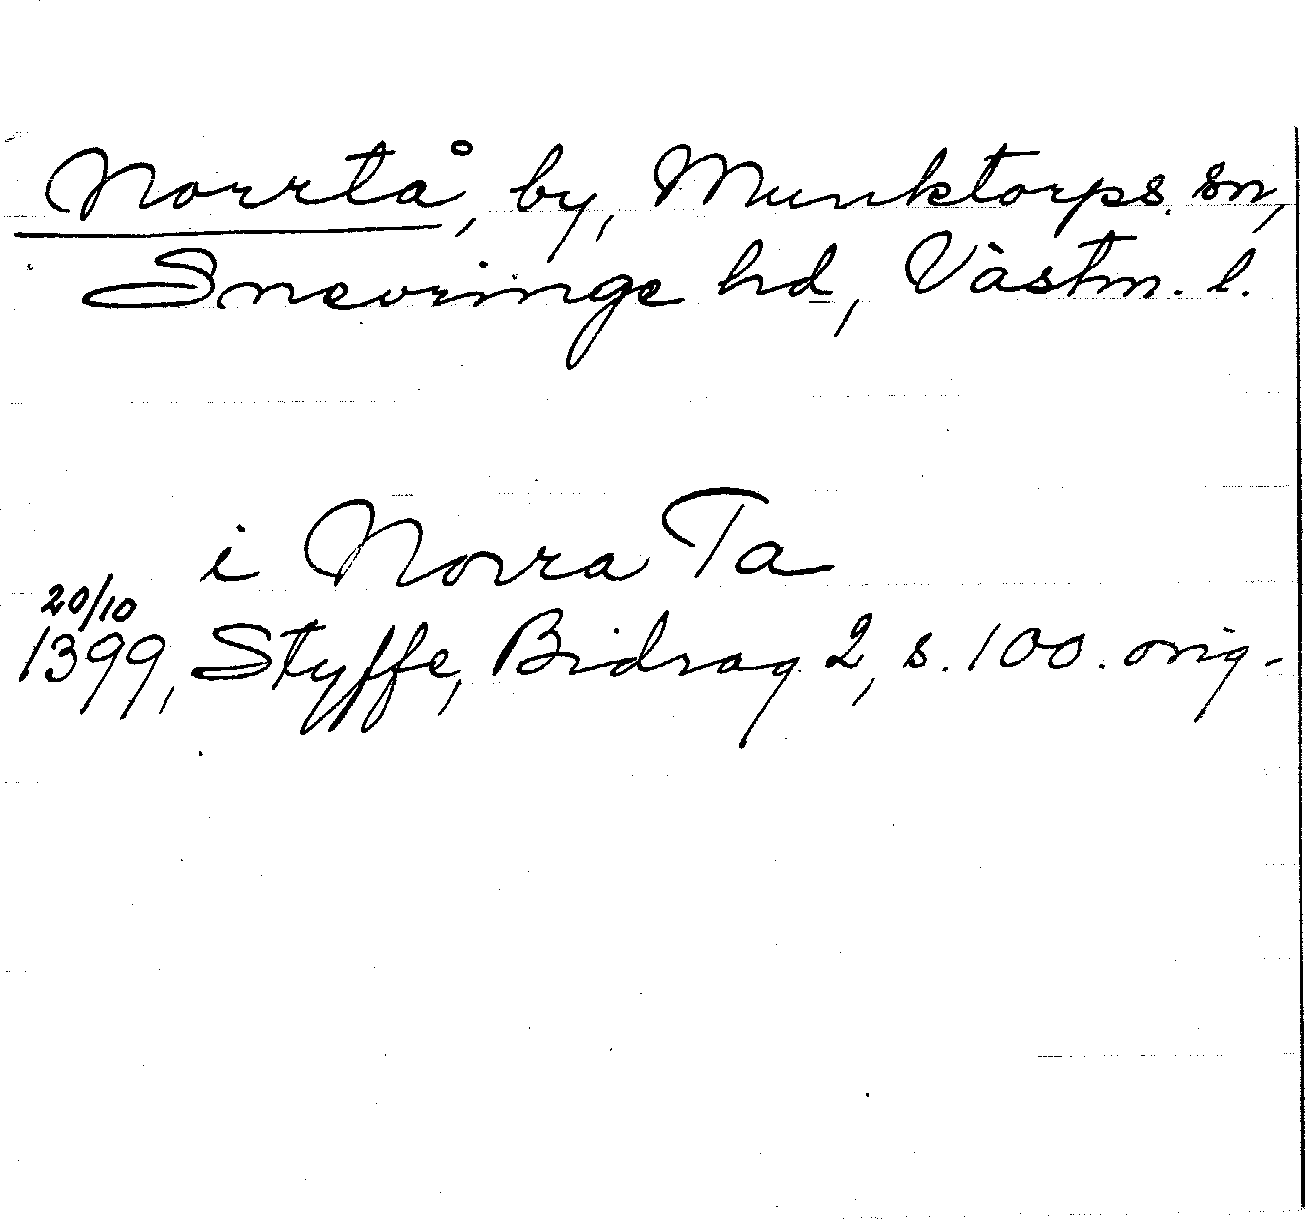 Norrtå, by, Munktorps sn,
Snevringe hd, Västm. l.
i Norra Ta
20/10
1399, Styffe, Bidrag 2, s. 100. orig.